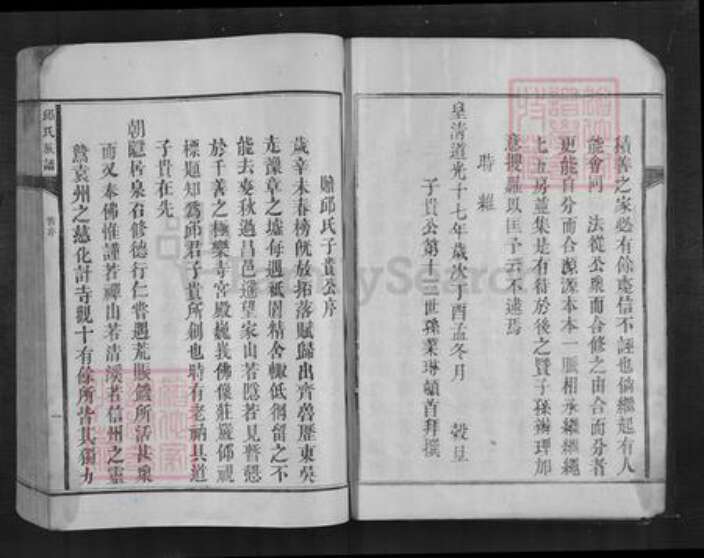 積善之家必有餘慶信不誣也倘繼起有人
能會同　法從公衆而合修之由合而分者
更能自分而合源源本本一脈相承繼繼繩
七五房並集是有待於後之賢子孫衡理加
意搜羅以匡予云不逮焉
時維
皇清道光十七年歲次丁酉孟冬月　穀旦
子貴公第十三世孫業琳頓首拜撰
贈邱氏子貴公序
歲辛未春榜旣放拓落賦歸出齊魯歷東吳
走豫章之墟每遇祇園精舍輒低徊留之不
能去麥秋過昌邑遙望家山若隱若見暫憇
於千善之極樂寺宮殿巍峩佛像莊嚴仰視
標題知爲邱君子貴所創也時有老衲具道
子貴在先
朝隱居泉石修德行仁嘗遇荒賑饑所活甚衆
而又奉佛惟謹若禪山若清溪若信州之靈
鷲袁州之慈化計寺觀十有餘所皆其獨力
邱氏族譜
FamilySearch